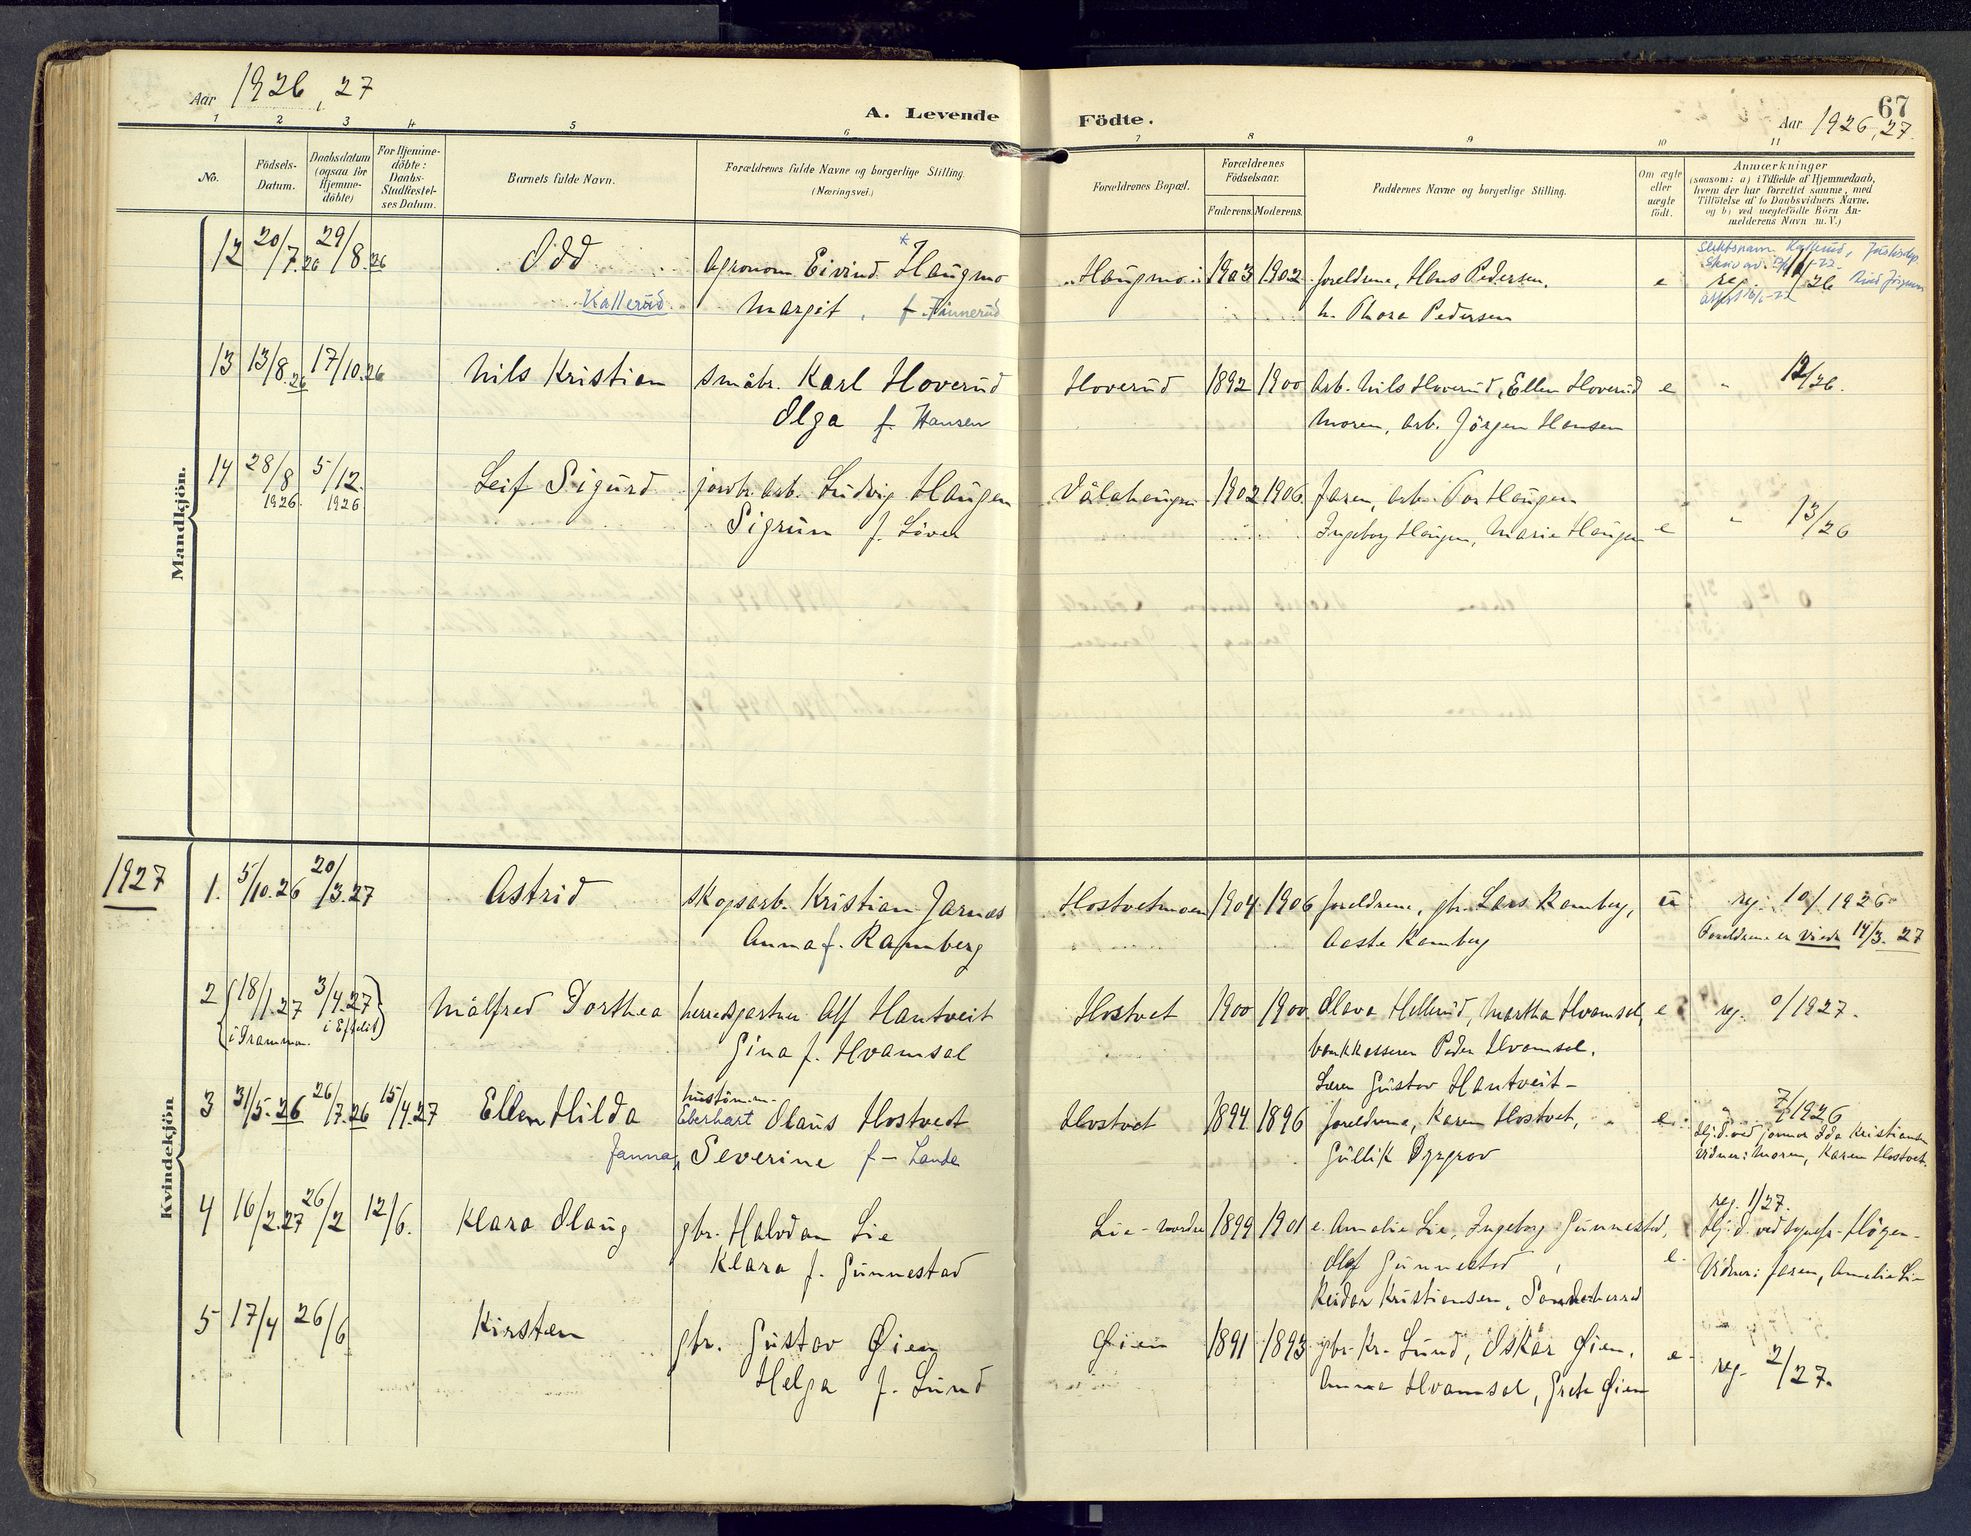 Aar 1926, 27
A. Levende Födte.
67
Aar 1926, 27.
1 2 3 4 5 6 7 8 9 10 11
No.
Födsels-
Datum.
Daabsdatum
(ogsaa for
Hjemme-
döbte)
For Hjemme-
döbte:
Daabs-
Stadfæstel-
ses Datum.
Barnets fulde Navn.
Forældrenes fulde Navne og borgerlige Stilling.
(Næringsvei.)
Forældrenes Bopæl.
Forældrenes
Födselsaar.
Faderens. Moderens.
Faddernes Navne og borgerlige Stilling.
Om ægte
eller
uægte
födt.
Anmærkninger
(saasom: a) i Tilfælde af Hjemmedaab,
hvem der har forrettet samme, med
Tilföielse af to Daabsvidners Navne.
og b) ved uægtefödte Börn An-
melderens Navn m. V.)
Mandkjön.
12 20/7.26 29/8.26 Odd Agronom Eivind Haugmo Haugmo 1903 1902 foreldrene, Hans Pedersen, e reg. 11/26
Kallerud Margit, f. h. Thora Pedersen
13 13/8.26 17/10.26 Nils Kristian småbr. Karl Hoverud Hoverud 1892 1900 Arb. Nils Hoverud, Ellen Hoverud e " 12/26.
Olga f. Hansen Moren, arb. Jörgen Hansen
14 28/8 1926. 5/12. 1926. Leif Sigurd jordbr.arb. Ludvig Haugen Vålahaugen 1902 1906 Faren, arb. Tor Haugen
Sigrun f. Löver Ingeborg Haugen, Marie Haugen e " 13/26
1927
Kvindekjön
1. 5/10.26 20/3.27 Astrid skogsarb. Kristian Jarnæs Hostvetmoen 1904 1906 foreldrene, gbr. Lars Ramberg, u reg. 10/1926
Anna f. Ramberg Aaste Ramberg Foreldrene er viede 14/3. 27
2 18/1.27 3/4.27 Målfred Dorthea herredsgartner Alf Hantveit Hostvet 1900 1900 Olava Hellerud, Martha Hvamsal, e reg. 0/1927.
i Drammen. Gina f. Hvamsal bankkasserer Peder Hvamsal.
Lærer Gustav Hantveit
3 31/5.26 26/7.26 15/4.27 Ellen Hilda Eberhart Olaus Hostvedt Hostvet 1894 1896 foreldrene, Karen Hostvet, e. 7/1926
Janna Severine f. Lande Gullik Dyrgrov Hj.d. ved jormor Ida Kristiansen
Vidner: Moren, Karen Hostvet.
4 16/2.27 26/2 12/6. Klara Olaug gbr. Halvdan Lie Lie - nordre 1899 1901 e. Amalie Lie, Ingeborg Gunnestad, reg. 1/27.
Klara f. Gunnestad Olaf Gunnestad, e Hj.d. ved sognepr. Högen
Reidar Kristiansen, Sandeherred Vidner: faren, Amalie Lie
5 17/4 26/6 Kirsten gbr. Gustav Øien Øien 1891 1893 gbr. Kr. Lund, Oskar Øien, e reg. 2/27.
Helga f. Lund Anna Hvamsal, Grete Øien